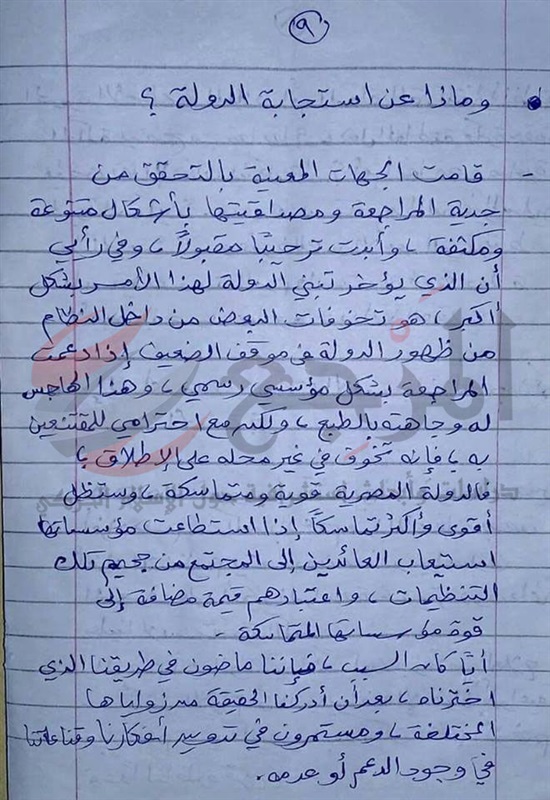 ٩
وماذا عن استجابة الدولة ؟
- قامت الجهات المعنية بالتحقق من
جدية المراجعة ومصداقيتها بأشكال متنوعة
ومكثفة ، وأبدت ترحيبًا مقبولاً ، وفي رأيي
أن الذي يؤخر تبني الدولة لهذا الأمر بشكل
أكبر ، هو تخوفات البعض من داخل النظام
من ظهور الدولة في موقف الضعيف إذا دعمت
المراجعة بشكل مؤسسي رسمي ، وهذا الهاجس
له وجاهته بالطبع ، ولكن مع احترامي للمقتنعين
به ، فإنه تخوف في غير محله على الإطلاق ؛
فالدولة المصرية قوية ومتماسكة ، وستظل
أقوى وأكثر تماسكًا إذا استطاعت مؤسساتها
استيعاب العائدين إلى المجتمع من جحيم تلك
التنظيمات ، واعتبارهم قيمة مضافة إلى
قوة مؤسساتها المتماسكة .
أيًّا كان السبب ، فإننا ماضون في طريقنا الذي
اخترناه ، بعد أن أدركنا الحقيقة من زواياها
المختلفة ، ومستمرون في تدوين أفكارنا وقناعاتنا
في وجود الدعم أو عدمه .
المرجع